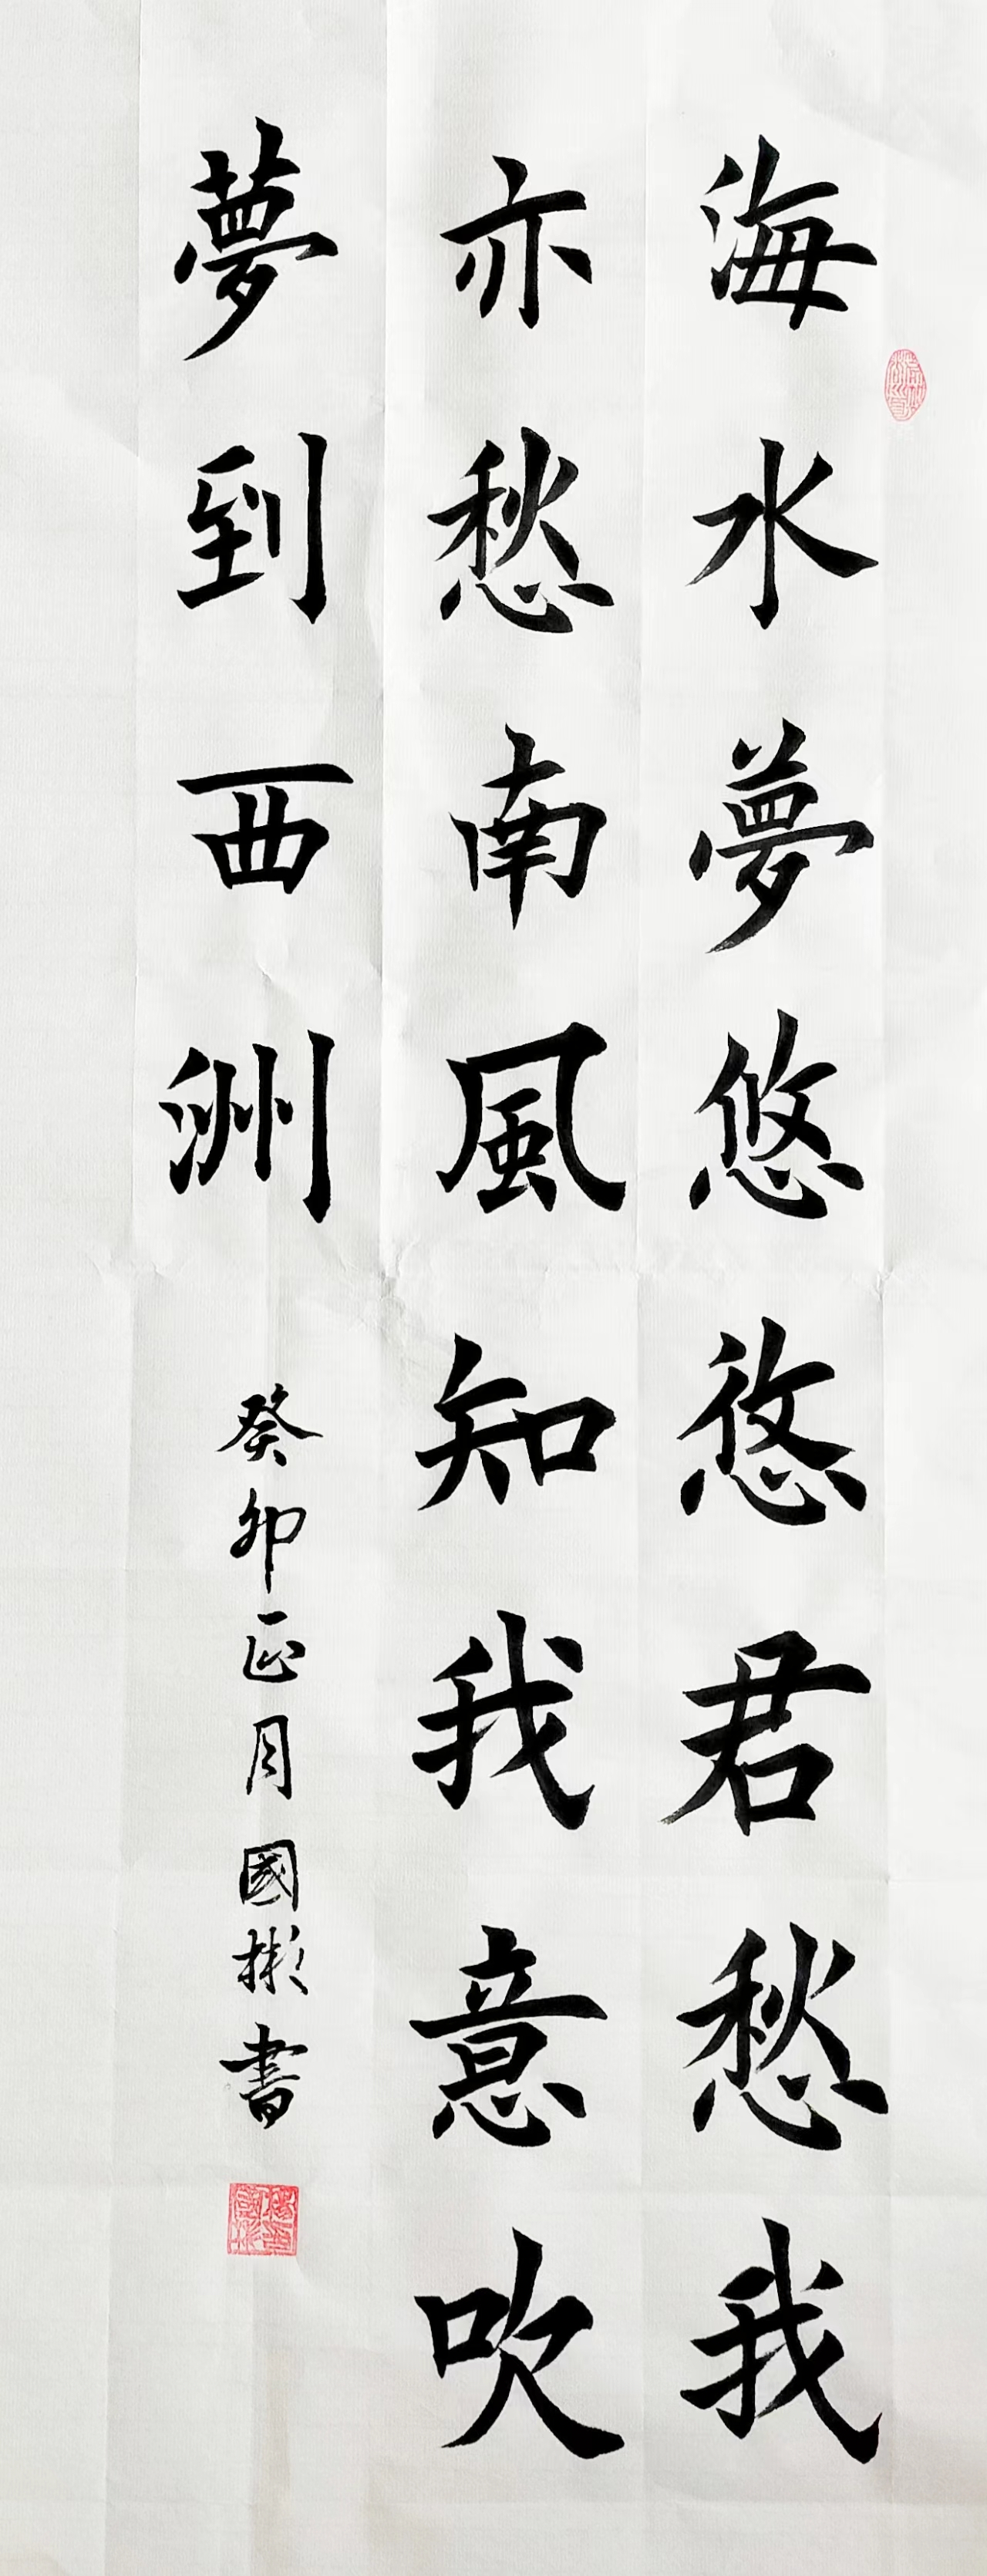 海水夢悠悠君愁我
亦愁南風知我意吹
夢到西洲
癸卯正月國彬書